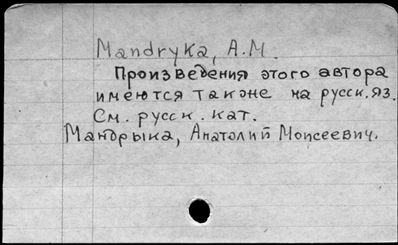 Mandryka, A.M.
Произведения этого автора
имеются также на русск. яз.
См. русск. кат.
Мандрыка, Анатолий Моисеевич.